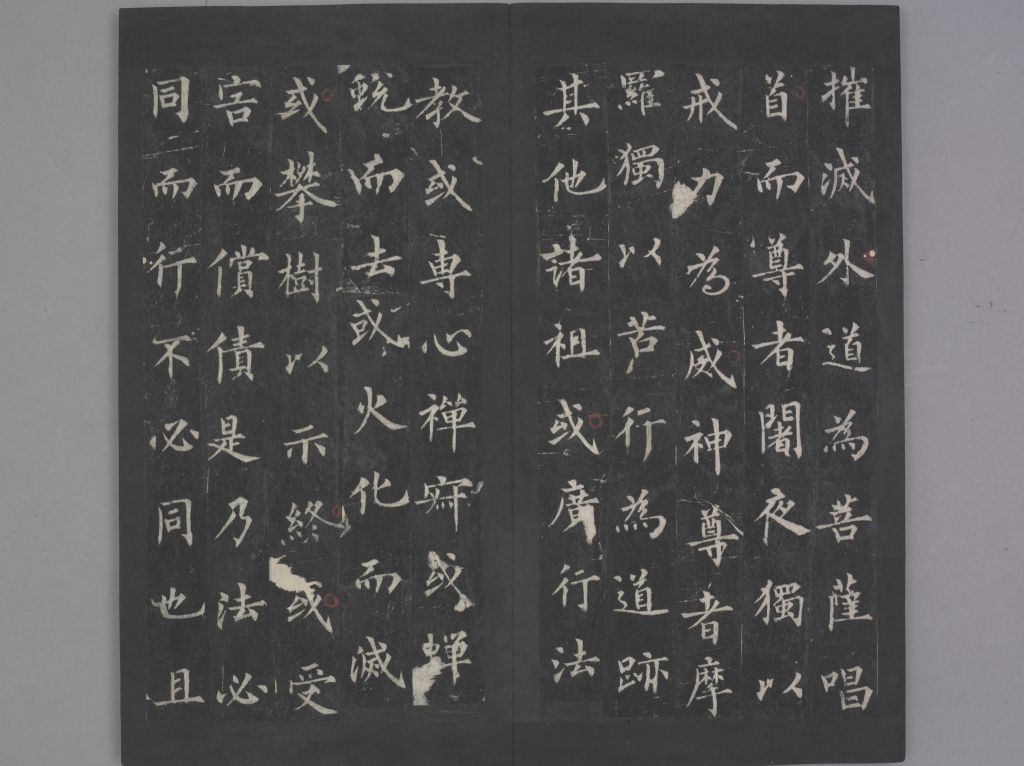 摧滅外道為菩薩唱
首而尊者闍夜獨以
戒力為威神尊者摩
羅獨以苦行為道跡
其他諸祖或廣行法
教或専心禪寂或蟬
蛻而去或火化而滅
或攀樹以示終或受
害而償債是乃法必
同而行不必同也且